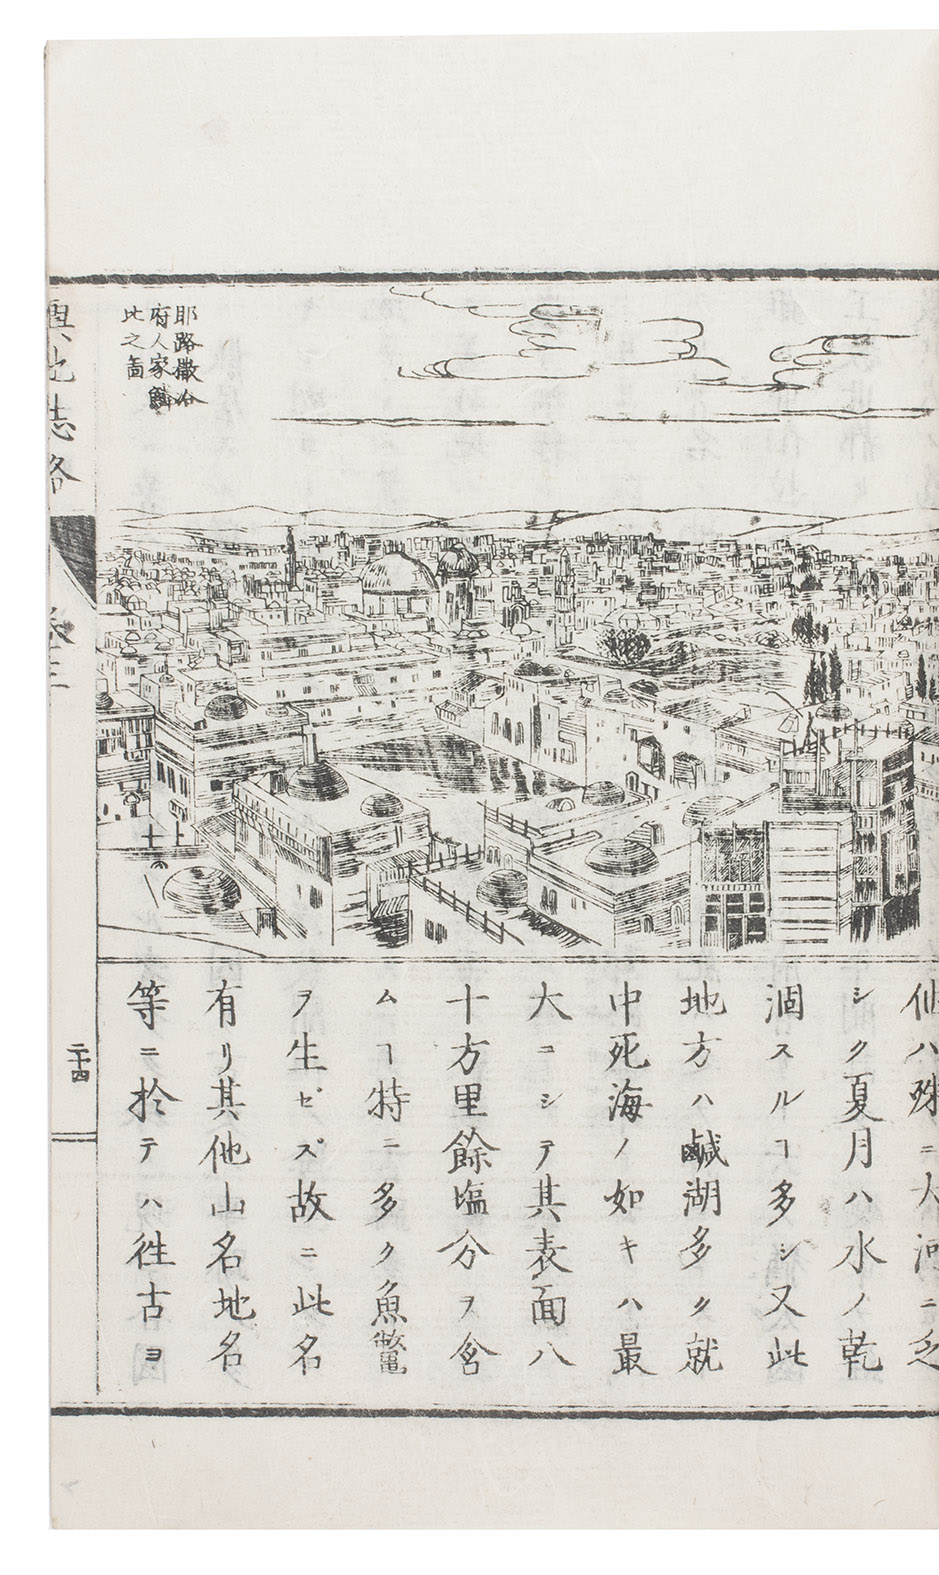 耶路撒冷
府人家鱗
比之圖
仙ハ殊ニ大河ニ乏
シク夏月ハ水ノ乾
涸スルヿ多シ又此
地方ハ鹹湖多ク就
中死海ノ如キハ最
大ニシテ其表面八
十方里餘塩分ヲ含
ムヿ特ニ多ク魚鼈
ヲ生ゼズ故ニ此名
有リ其他山名地名
等ニ於テハ徃古ヨ
輿地誌略
卷三
二十四